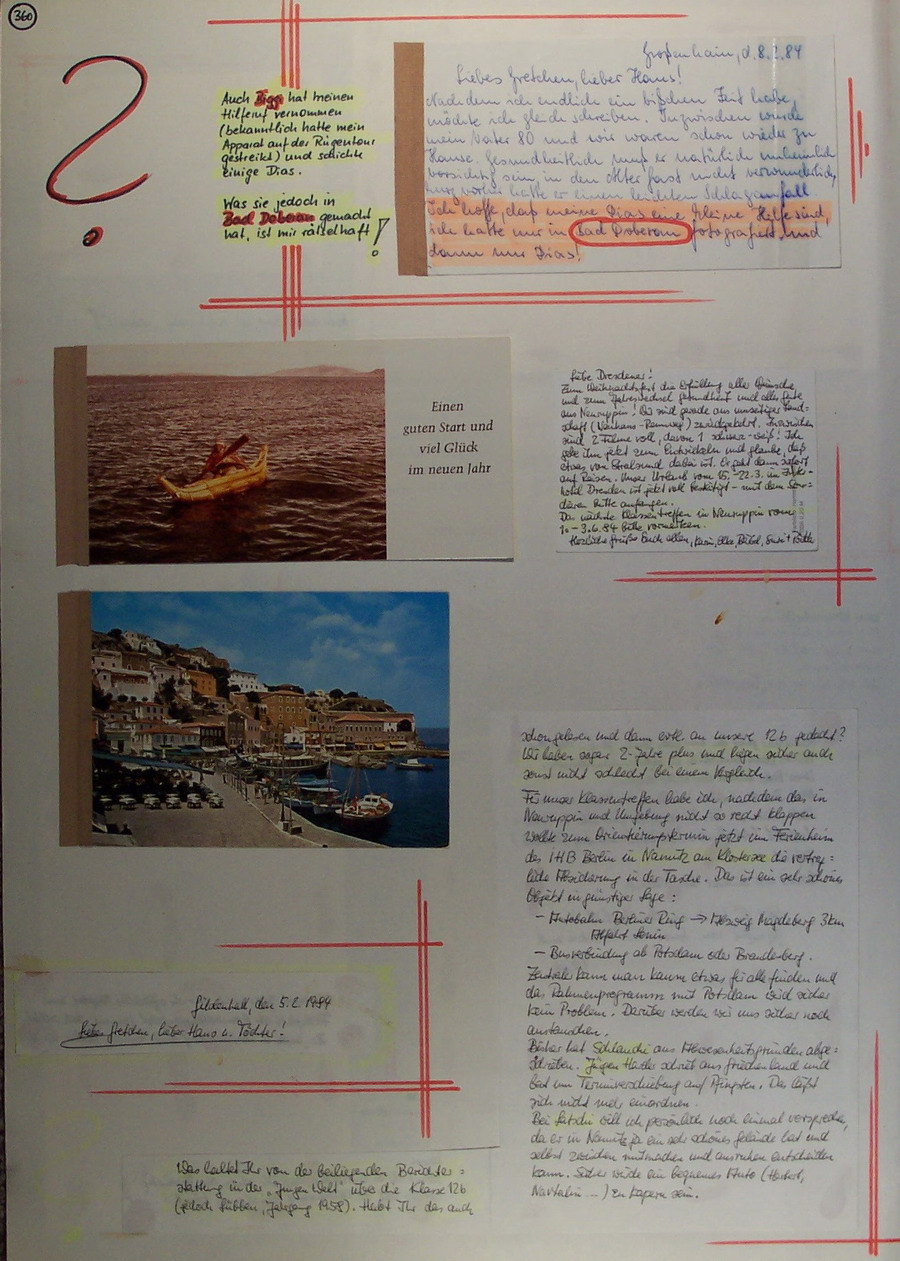 360
?
Auch Biggi hat meinen
Hilferuf vernommen
(bekanntlich hatte mein
Apparat auf der Rügentour
gestreikt) und schickte
einige Dias.
Was sie jedoch in
Bad Doberan gemacht
hat, ist mir rätselhaft!
Großenhain, d. 8.2.84
Liebes Gretchen, lieber Hans!
Nachdem ich endlich ein bißchen Zeit habe,
möchte ich gleich schreiben. Inzwischen wurde
mein Vater 80 und wir waren schon wieder zu
Hause. Gesundheitlich muß er natürlich unheimlich
vorsichtig sein, in dem Alter fast nicht verwunderlich,
kurz vorher hatte er einen leichten Schlaganfall.
Ich hoffe, daß meine Dias eine kleine Hilfe sind,
ich hatte nur in Bad Doberan fotografiert und
dann nur Dias!
Einen
guten Start und
viel Glück
im neuen Jahr
Liebe Dresdener!
Zum Weihnachtsfest die Erfüllung aller Wünsche
und zum Jahreswechsel Gesundheit und alles Gute
aus Neuruppin! Wir sind gerade aus
schaft (Neuhaus-Rennweg) zurückgekehrt. Inzwischen
sind 2 Filme voll, davon 1 schwarz-weiß! Ich
gebe ihn jetzt zum Entwickeln und glaube, daß
etwas von Stralsund dabei ist. Er geht dann sofort
auf Reisen. Unser Urlaub vom 15.-22.3. im
hotel Dresden ist jetzt voll bestätigt - mit dem
bitte anfangen.
Das nächste Klassentreffen in Neuruppin vom
1.-3.6.84 bitte vormerken.
Herzliche Grüße Euch allen,
schon gelesen und dann evtl. an unsere 12b gedacht?
Wir haben sogar 2 Jahre plus und liegen sicher auch
sonst nicht schlecht bei einem Vergleich.
Für unser Klassentreffen habe ich, nachdem das in
Neuruppin und Umgebung nicht so recht klappen
wollte zum Orientierungstermin jetzt im Ferienheim
des IHB Berlin in Nahmitz am Klostersee die vertrag=
liche Absicherung in der Tasche. Das ist ein sehr schönes
Objekt in günstiger Lage:
- Autobahn Berliner Ring → Abzweig Magdeburg 3km
Abfahrt Lehnin
- Busverbindung ab Potsdam oder Brandenburg.
Zentraler kann man kaum etwas für alle finden und
das Rahmenprogramm mit Potsdam wird sicher
kein Problem. Darüber werden wir uns sicher noch
austauschen.
Bisher hat aus Abwesenheitsgründen abge=
schrieben. Jürgen Harder schrieb aus Griechenland und
bat um Terminverschiebung auf Pfingsten. Das läßt
sich nicht mehr einordnen.
Bei will ich persönlich noch einmal vorsprechen,
da er in Nahmitz ja ein sehr schönes Gelände hat und
selbst zwischen mitmachen und ausruhen entscheiden
kann. Sicher würde ein bequemes Auto (Herbert,
...) zu kapern sein.
Gildenhall, den 5.2.1984
Liebes Gretchen, lieber Hans u. Töchter!
Was haltet Ihr von der beiliegenden Berichter=
stattung in der "Jungen Welt" über die Klasse 12b
(jedoch Lübben, Jahrgang 1958). Habt Ihr das auch